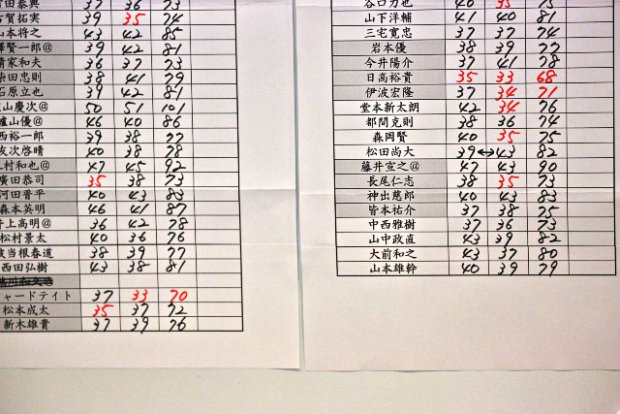 田泰興 37 36 73
古賀拓実 39 35 74
山本将之 43 42 85
澤賢一郎@ 39 42 81
清家和夫 36 37 73
柴田忠則 38 41 79
石原立也 39 42 81
山慶次@ 50 51 101
山優@ 46 40 86
西裕一郎 39 38 77
友次啓晴 40 38 78
村和也@ 47 45 92
廣田恭司 35 38 73
河田晋平 40 43 83
森本英明 46 41 87
井上高明@ 36 42 78
松村景太 40 36 76
波当根春道 38 39 77
西田弘樹 43 38 81
ャードテイト 37 33 70
松本成太 35 37 72
新木雄貴 37 39 76
谷口力也 40 35 75
山下洋輔 41 40 81
三宅寛忠 37 37 74
岩本優 38 39 77
今井陽介 37 41 78
日高裕貴 35 33 68
伊波宏隆 37 34 71
堂本新太朗 42 34 76
都間克則 38 36 74
森岡賢 40 35 75
松田尚大 39↔43 82
藤井宣之@ 47 43 90
長尾仁志 38 35 73
神出慈郎 40 43 83
皆本祐介 37 38 75
中西雅樹 37 36 73
山中政直 43 39 82
大前和之 43 37 80
山本雄幹 40 39 79